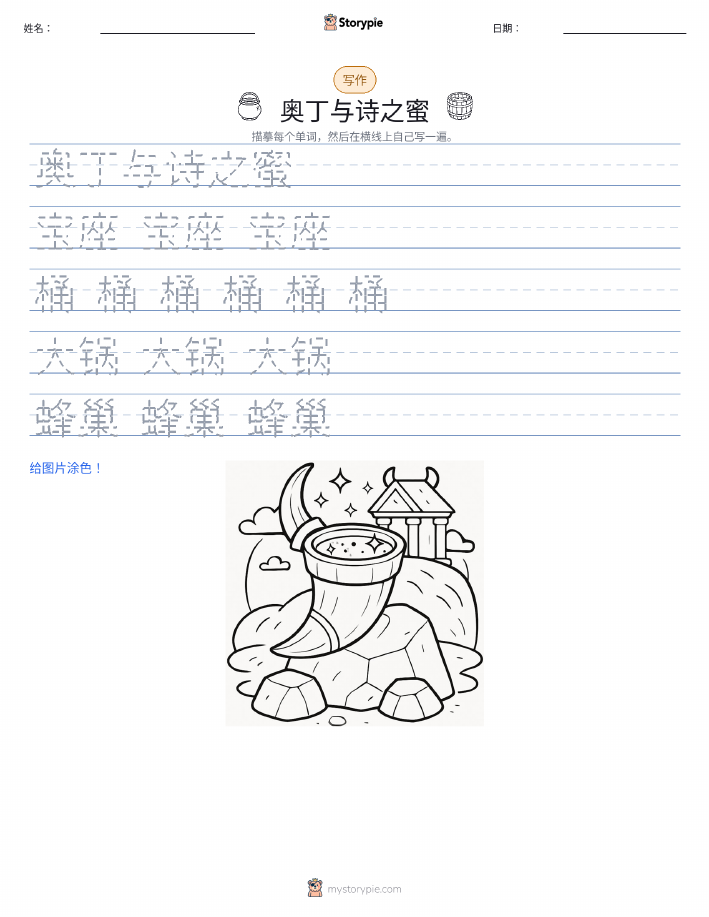 姓名：
Storypie
日期：
写作
奥丁与诗之蜜
描摹每个单词，然后在横线上自己写一遍。
奥丁与诗之蜜
宝座 宝座 宝座
桶 桶 桶 桶 桶 桶
大锅 大锅 大锅
蜂巢 蜂巢 蜂巢
给图片涂色！
mystorypie.com